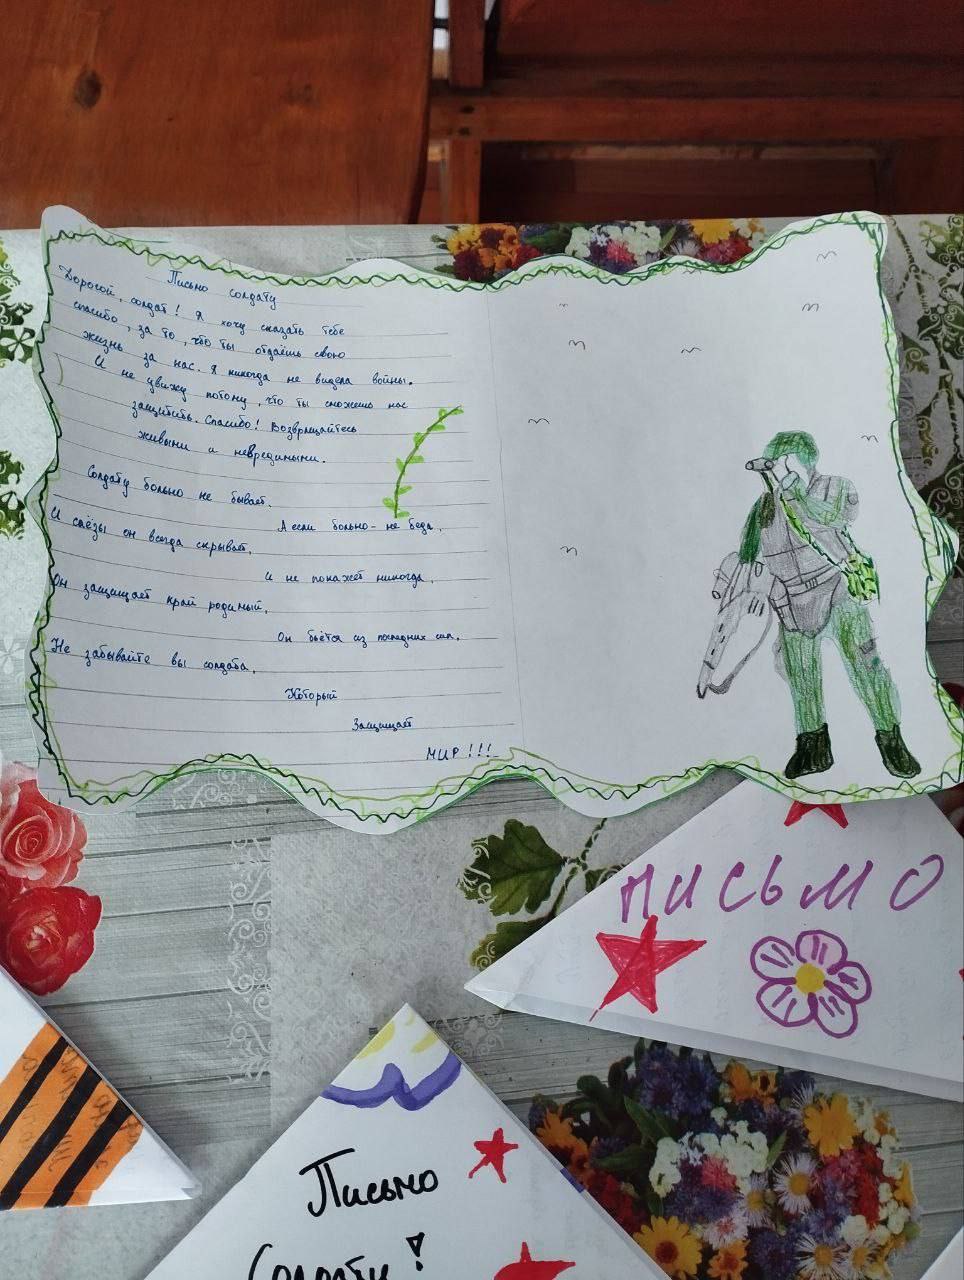 Письмо солдату
Дорогой, солдат! Я хочу сказать тебе
спасибо, за то, что ты отдаёшь свою
жизнь за нас. Я никогда не видела войны.
И не увижу потому, что ты сможешь нас
защитить. Спасибо! Возвращайтесь
живыми и невредимыми.
Солдату больно не бывает.
А если больно - не беда.
И слёзы он всегда скрывает,
и не покажет никогда.
Он защищает край родимый,
Он бьётся из последних сил.
Не забывайте вы солдата,
Который
Защищает
МИР!!!
ПИСЬМО
Письмо
Солдату!